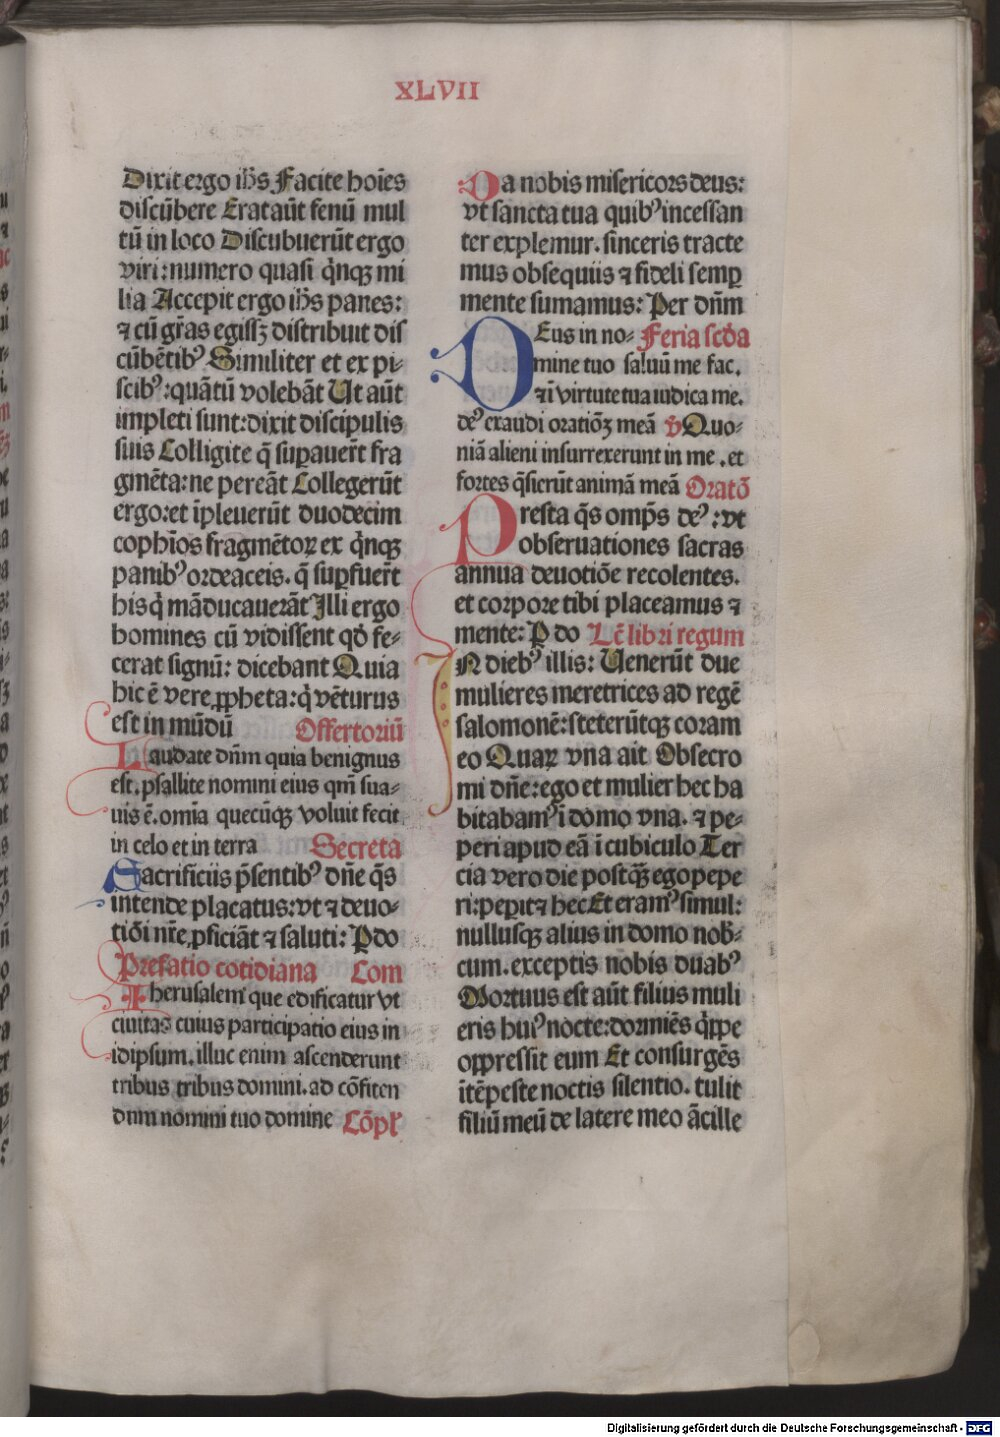 XLVII
Dixit ergo ih̄s Facite hoīes
discūbere Erat aūt fenū mul
tū in loco Discubuerūt ergo
viri: numero quasi q̄nqꝫ mi
lia Accepit ergo ih̄s panes:
⁊ cū gr̄as egissꝫ distribuit dis
cūbētibꝰ Similiter et ex pi-
scibꝰ: quātū volebāt Ut aūt
impleti sunt: dixit discipulis
suis Colligite q̄ suꝑauer̄t fra
gmēta: ne pereāt Collegerūt
ergo: et īpleuerūt duodecim
cophīos fragmētoꝝ ex q̄nqꝫ
panibꝰ ordeaceis. q̄ suꝑfuer̄t
his q̄ māducauerāt Illi ergo
homines cū vidissent qd̄ fe-
cerat signū: dicebant Quia
hic ē vere ꝓpheta: q̄ vēturus
est in mūdū Offertoriū
Laudate dn̄m quia benignus
est. psallite nomini eius qm̄ sua-
uis ē. omīa quecūqꝫ voluit fecit
in celo et in terra Secreta
Sacrificiis p̄sentibꝰ dn̄e q̄s
intende placatus: vt ⁊ deuo-
tiōi nr̄e ꝓficiāt ⁊ saluti: Ꝑ do
Prefatio cotidiana Com
Iherusalem que edificatur vt
ciuitas cuius participatio eius in
idipsum. illuc enim ascenderunt
tribus tribus domini. ad cōfiten
dum nomini tuo domine Cōpl̄
Da nobis misericors deus:
vt sancta tua quibꝰ incessan
ter explemur. sinceris tracte
mus obsequiis ⁊ fideli semꝑ
mente sumamus: Per dn̄m
Deus in no- Feria scd̄a
mine tuo saluū me fac.
⁊ ī virtute tua iudica me.
deꝰ exaudi oratiōꝫ meā v̄ Quo-
niā alieni insurrexerunt in me. et
fortes q̄sierūt animā meā Oratō
Presta q̄s omp̄s deꝰ: vt
obseruationes sacras
annua deuotiōe recolentes.
et corpore tibi placeamus ⁊
mente: Ꝑ do Lc̄ libri regum
IN diebꝰ illis: Uenerūt due
mulieres meretrices ad regē
salomonē: steterūtqꝫ coram
eo Quaꝝ vna ait Obsecro
mi dn̄e: ego et mulier hec ha
bitabamꝰ ī domo vna. ⁊ pe-
peri apud eā ī cubiculo Ter
cia vero die postqꝫ̄ ego pepe
ri: peꝑit ⁊ hec Et eramꝰ simul:
nullusqꝫ alius in domo nob̄-
cum. exceptis nobis duabꝰ
Mortuus est aūt filius muli
eris huiꝰ nocte: dormiēs q̄ppe
oppressit eum Et consurgēs
ītēpeste noctis silentio. tulit
filiū meū de latere meo ācille
Digitalisierung gefördert durch die Deutsche Forschungsgemeinschaft - DFG